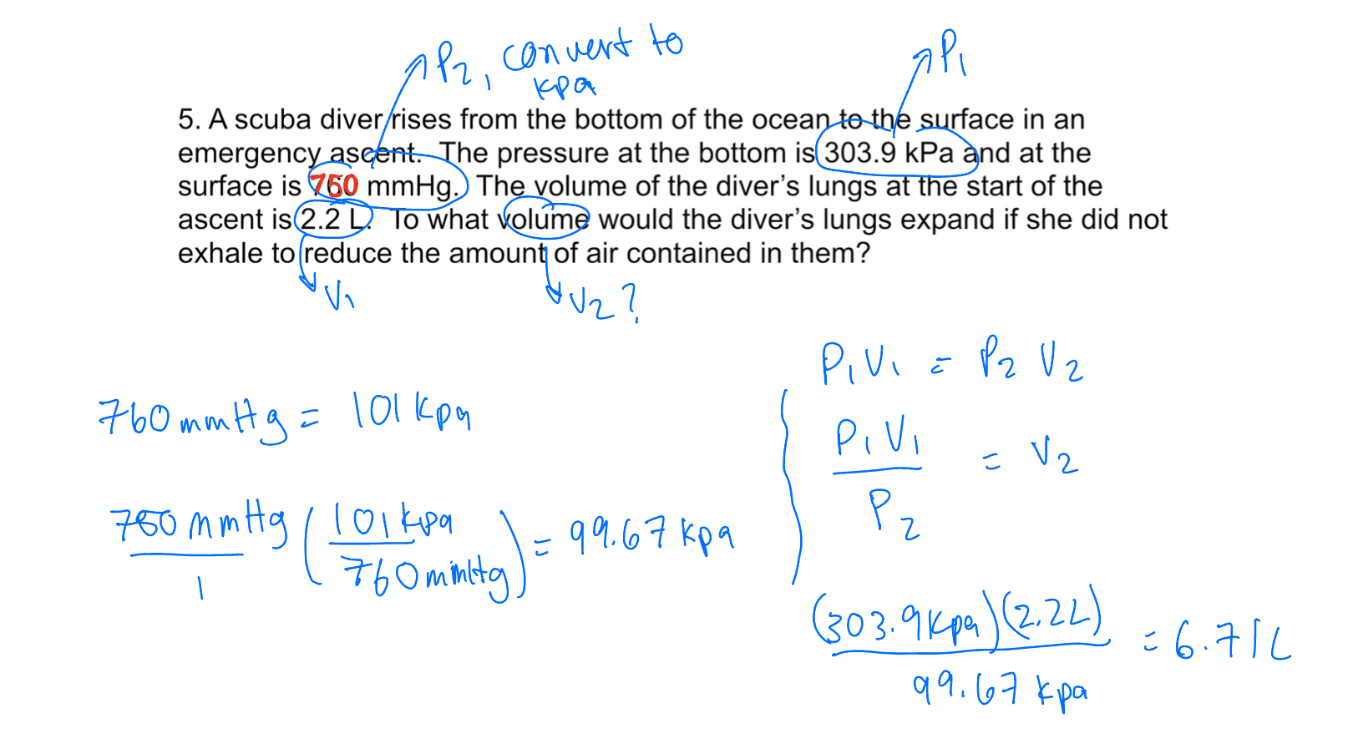 P2, convert to
kpa
P1
5. A scuba diver rises from the bottom of the ocean to the surface in an
emergency ascent. The pressure at the bottom is 303.9 kPa and at the
surface is 750 mmHg. The volume of the diver's lungs at the start of the
ascent is 2.2 L. To what volume would the diver's lungs expand if she did not
exhale to reduce the amount of air contained in them?
V1
V2?
P1V1 = P2 V2
760mmHg = 101 kpa
P1V1 / P2 = V2
750 mmHg / 1 (101 kpa / 760 mmHg) = 99.67 kpa
(303.9 kpa)(2.2L) / 99.67 kpa = 6.71L